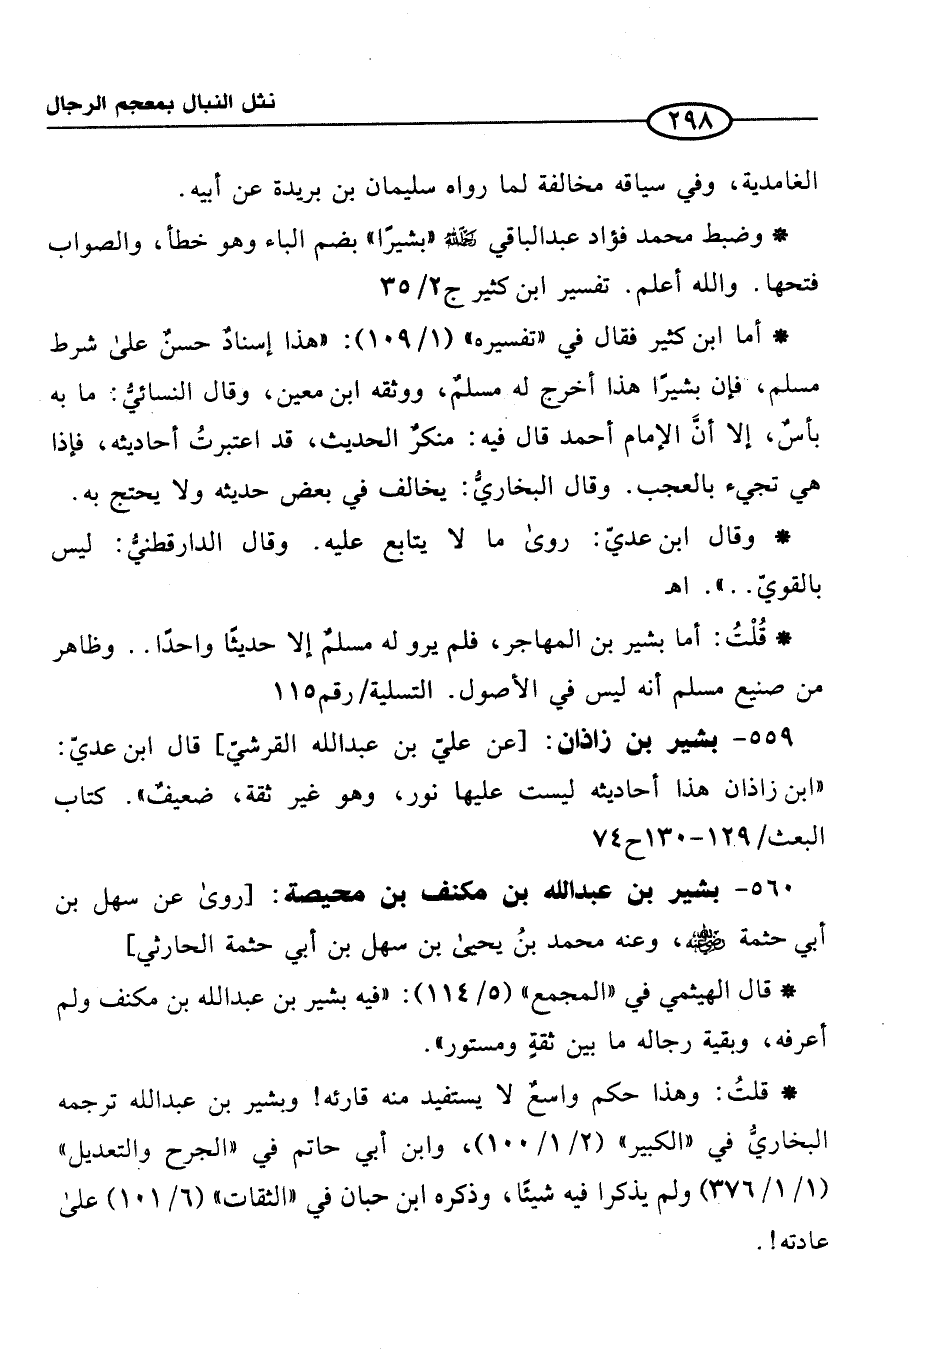 نثل النبال بمعجم الرجال
٢٩٨
الغامدية، وفي سياقه مخالفة لما رواه سليمان بن بريدة عن أبيه.
* وضبط محمد فؤاد عبدالباقي ﵀ «بشيرًا» بضم الباء وهو خطأ، والصواب
فتحها. والله أعلم. تفسير ابن كثير ج٢/ ٣٥
* أما ابن كثير فقال في «تفسيره» (١/ ١٠٩): «هذا إسنادٌ حسنٌ علىٰ شرط
مسلم، فإن بشيرًا هذا أخرج له مسلمٌ، ووثقه ابن معين، وقال النسائيُّ: ما به
بأسٌ، إلا أنَّ الإمام أحمد قال فيه: منكرُ الحديث، قد اعتبرتُ أحاديثه، فإذا
هي تجيء بالعجب. وقال البخاريُّ: يخالف في بعض حديثه ولا يحتج به.
* وقال ابن عديّ: روىٰ ما لا يتابع عليه. وقال الدارقطنيُّ: ليس
بالقويّ..». اهـ
* قُلْتُ: أما بشير بن المهاجر، فلم يرو له مسلمٌ إلا حديثًا واحدًا.. وظاهر
من صنيع مسلم أنه ليس في الأصول. التسلية/ رقم١١٥
٥٥٩- بشير بن زاذان: [عن عليّ بن عبدالله القرشيّ] قال ابن عديّ:
«ابن زاذان هذا أحاديثه ليست عليها نور، وهو غير ثقة، ضعيفٌ». كتاب
البعث/ ١٢٩-١٣٠ح٧٤
٥٦٠- بشير بن عبدالله بن مكنف بن محيصة: [روىٰ عن سهل بن
أبي حثمة ﵁، وعنه محمد بنُ يحيىٰ بن سهل بن أبي حثمة الحارثي]
* قال الهيثمي في «المجمع» (٥/ ١١٤): «فيه بشير بن عبدالله بن مكنف ولم
أعرفه، وبقية رجاله ما بين ثقةٍ ومستور».
* قلتُ: وهذا حكم واسعٌ لا يستفيد منه قارئه! وبشير بن عبدالله ترجمه
البخاريُّ في «الكبير» (٢/ ١/ ١٠٠)، وابن أبي حاتم في «الجرح والتعديل»
(١/ ١/ ٣٧٦) ولم يذكرا فيه شيئًا، وذكره ابن حبان في «الثقات» (٦/ ١٠١) علىٰ
عادته!.